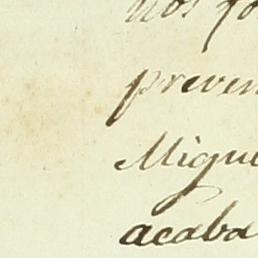 nos
preven
Migue
acaba